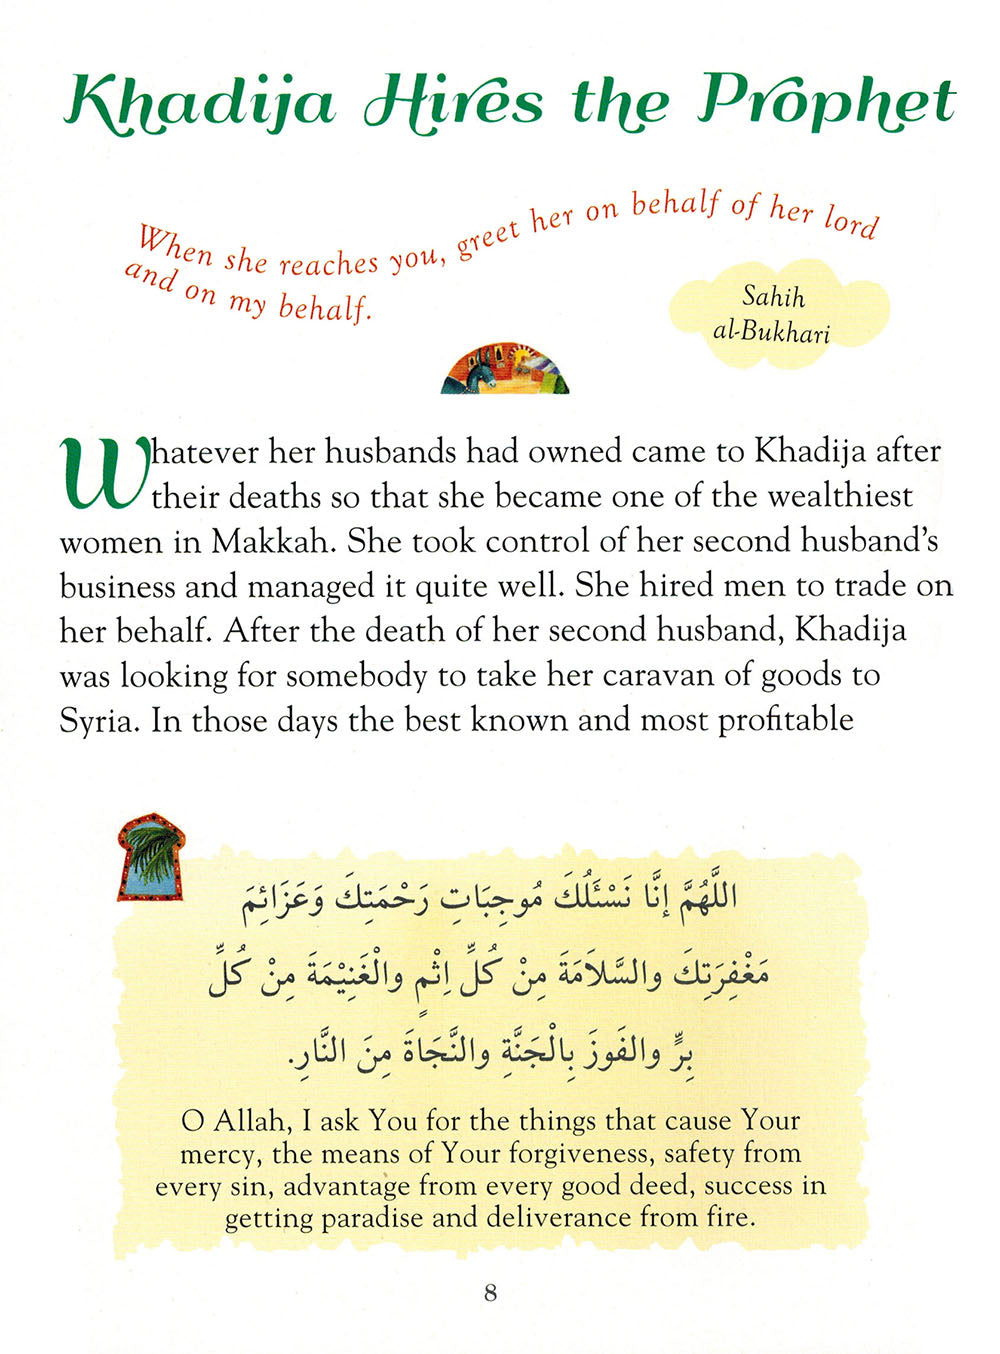 Khadija Hires the Prophet
When she reaches you, greet her on behalf of her lord
and on my behalf.
Sahih
al-Bukhari
Whatever her husbands had owned came to Khadija after
their deaths so that she became one of the wealthiest
women in Makkah. She took control of her second husband's
business and managed it quite well. She hired men to trade on
her behalf. After the death of her second husband, Khadija
was looking for somebody to take her caravan of goods to
Syria. In those days the best known and most profitable
اللَّهُمَّ إنَّا نَسْئَلُكَ مُوجِبَاتِ رَحْمَتِكَ وَعَزَائِمَ
مَغْفِرَتِكَ والسَّلاَمَةَ مِنْ كُلِّ اِثْمٍ والْغَنِيْمَةَ مِنْ كُلِّ
بِرٍّ والفَوزَ بِالْجَنَّةِ والنَّجَاةَ مِنَ النَّارِ.
O Allah, I ask You for the things that cause Your
mercy, the means of Your forgiveness, safety from
every sin, advantage from every good deed, success in
getting paradise and deliverance from fire.
8